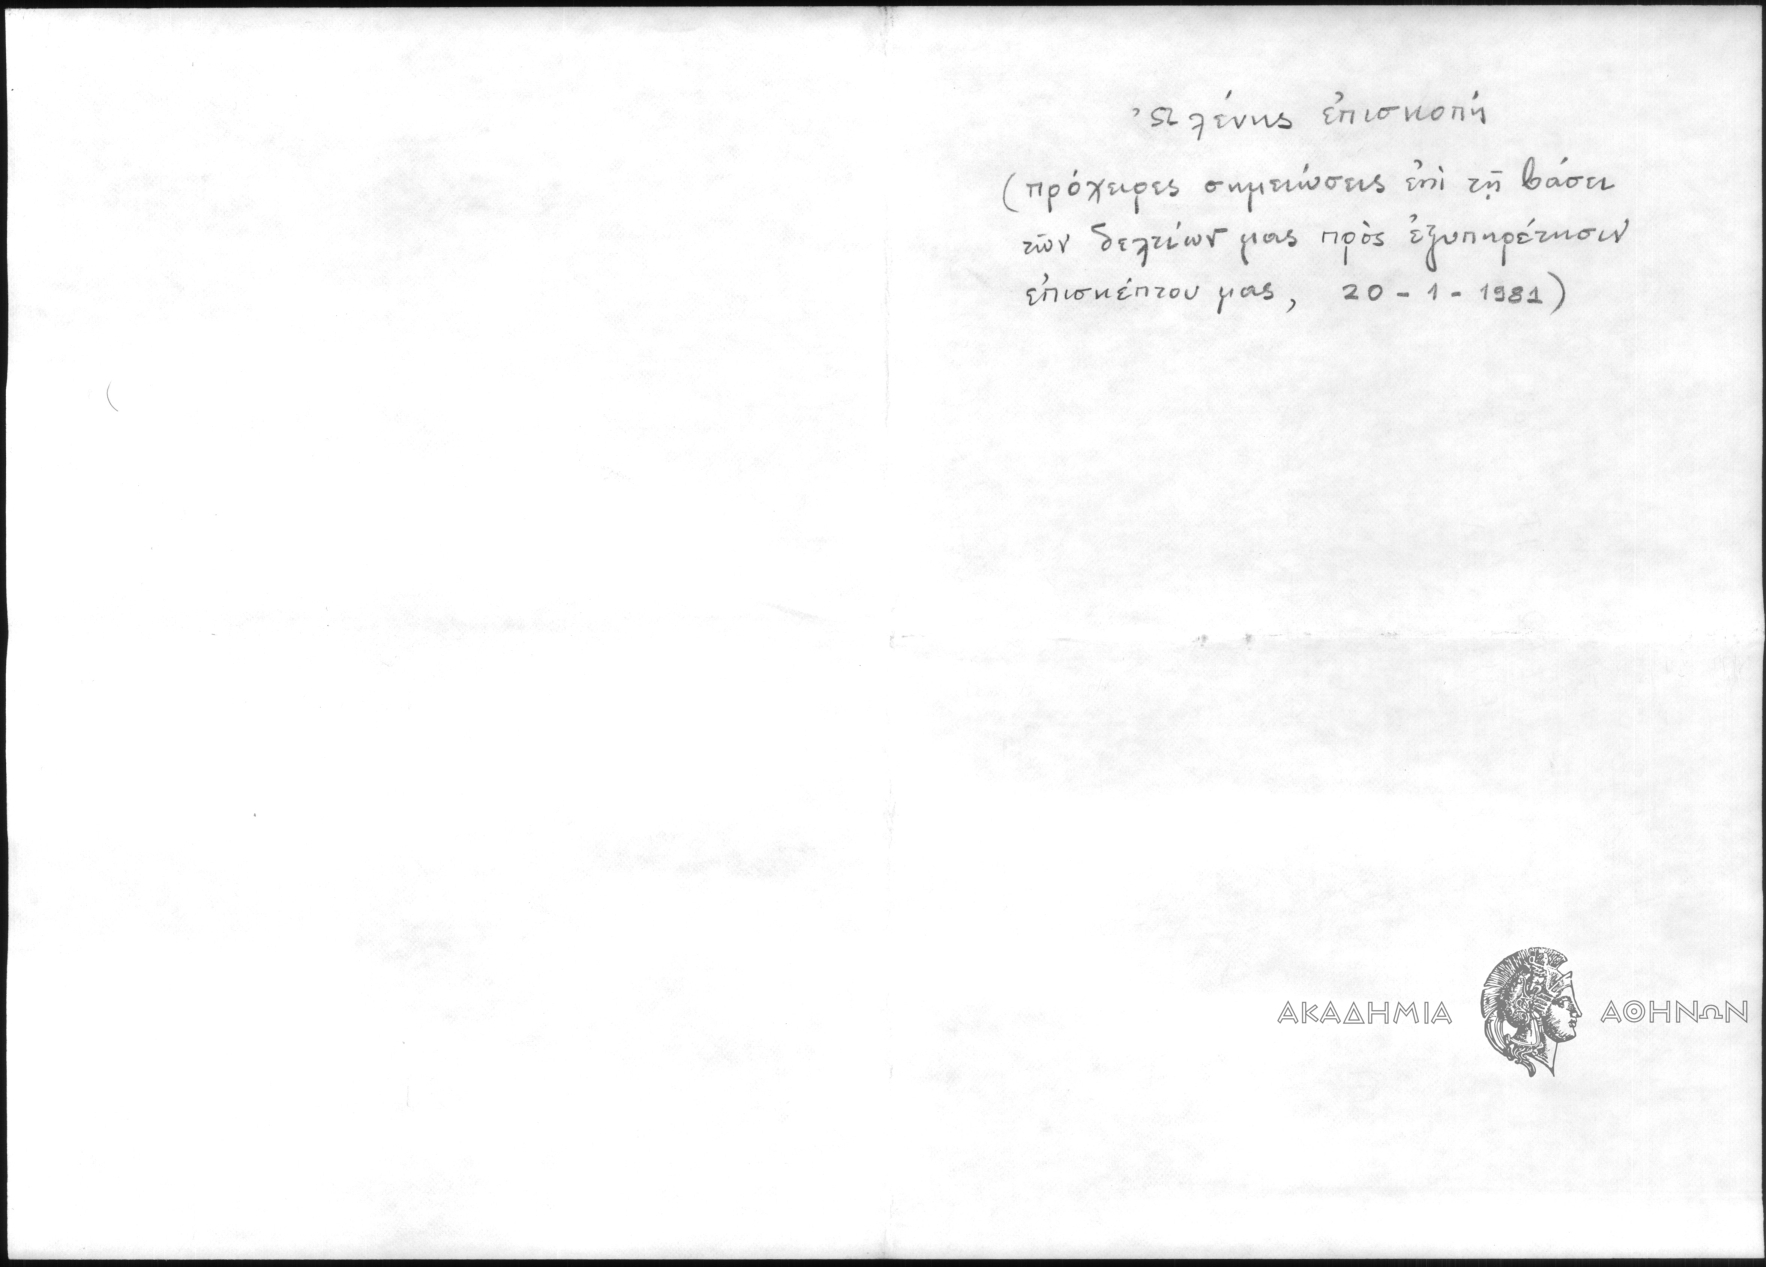 Ὠλένης ἐπισκοπή
(πρόχειρες σημειώσεις ἐπὶ τῇ βάσει
τῶν δελτίων μας πρὸς ἐξυπηρέτησιν
ἐπισκέπτου μας, 20-1-1981)
ΑΚΑΔΗΜΙΑ ΑΘΗΝΩΝ